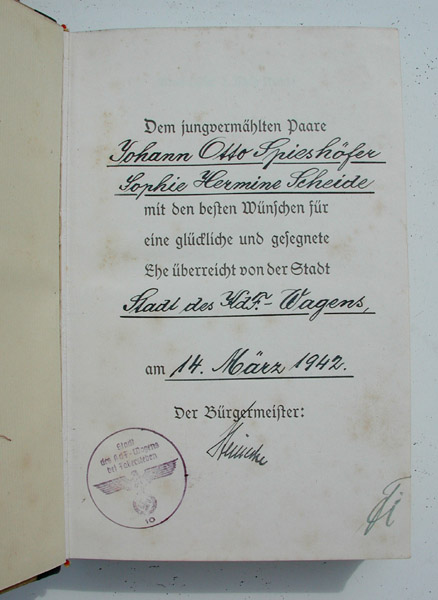 Dem jungvermählten Paare
Johann Otto Spieshöfer
Sophie Hermine Scheide
mit den besten Wünschen für
eine glückliche und gesegnete
Ehe überreicht von der Stadt
Stadt des KdF.-Wagens,
am 14. März 1942.
Der Bürgermeister:
Stadt
des KdF.-Wagens
bei Fallersleben
10